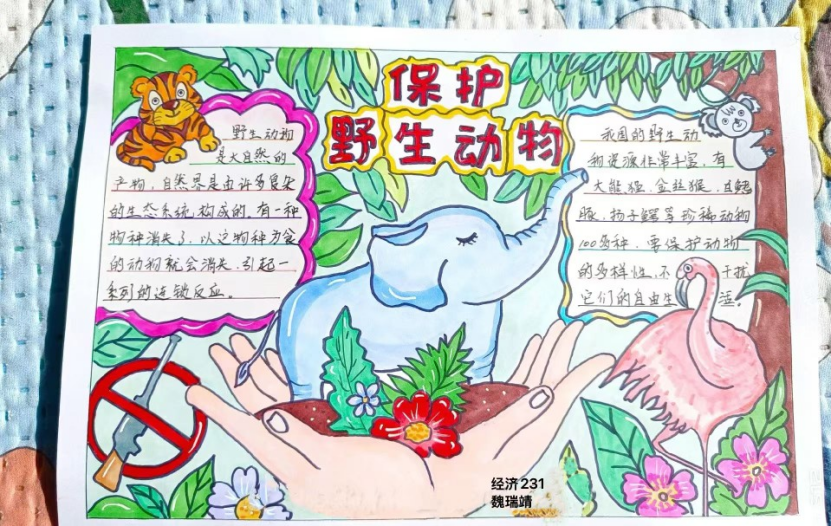 保护
野生动物
野生动物
是大自然的
产物,自然界是由许多复杂
的生态系统构成的。有一种
物种消失了,以这物种为食
的动物就会消失,引起一
系列的连锁反应。
我国的野生动
物资源非常丰富,有
大熊猫、金丝猴、白鳍
豚、扬子鳄等珍稀动物
100多种,要保护动物
的多样性,不干扰
它们的自由生活。
经济231
魏瑞靖